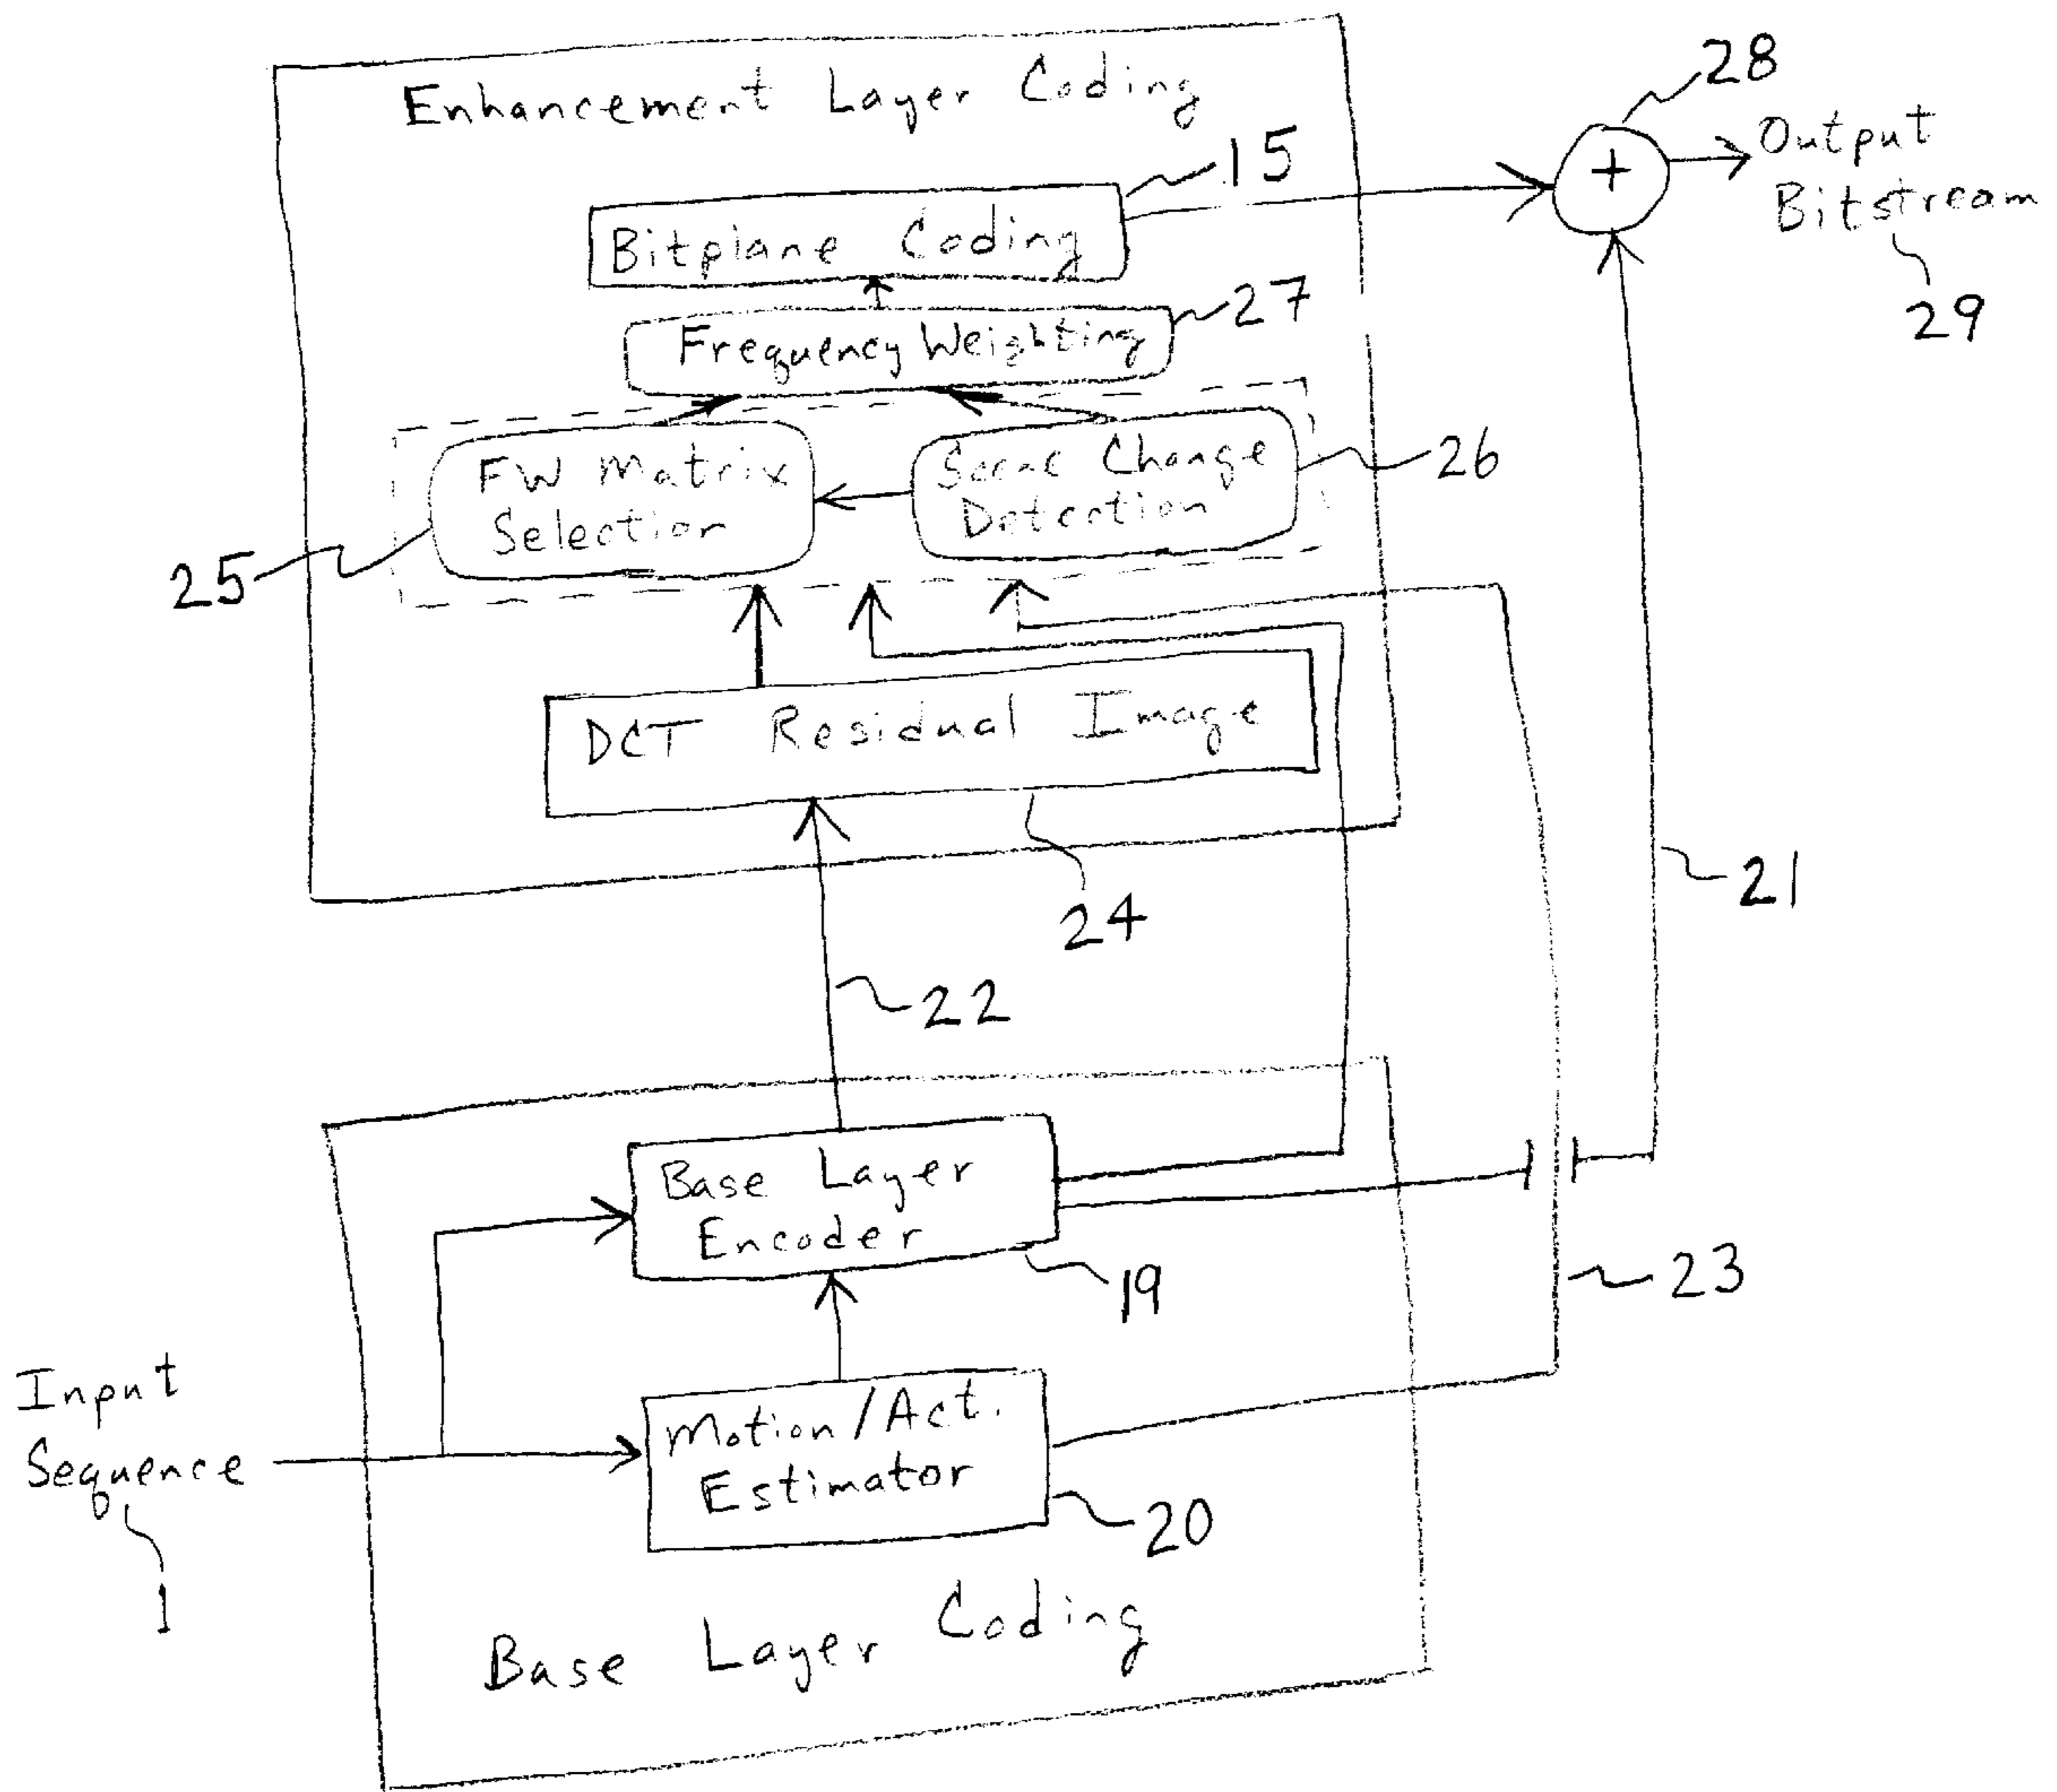 Enhancement Layer Coding
28
+
Output
Bitstream
29
15
Bitplane Coding
27
Frequency Weighting
FW Matrix
Selection
Scene Change
Detection
26
25
DCT Residual Image
24
21
22
Base Layer
Encoder
19
23
Input
Sequence
1
Motion/Act.
Estimator
20
Base Layer Coding